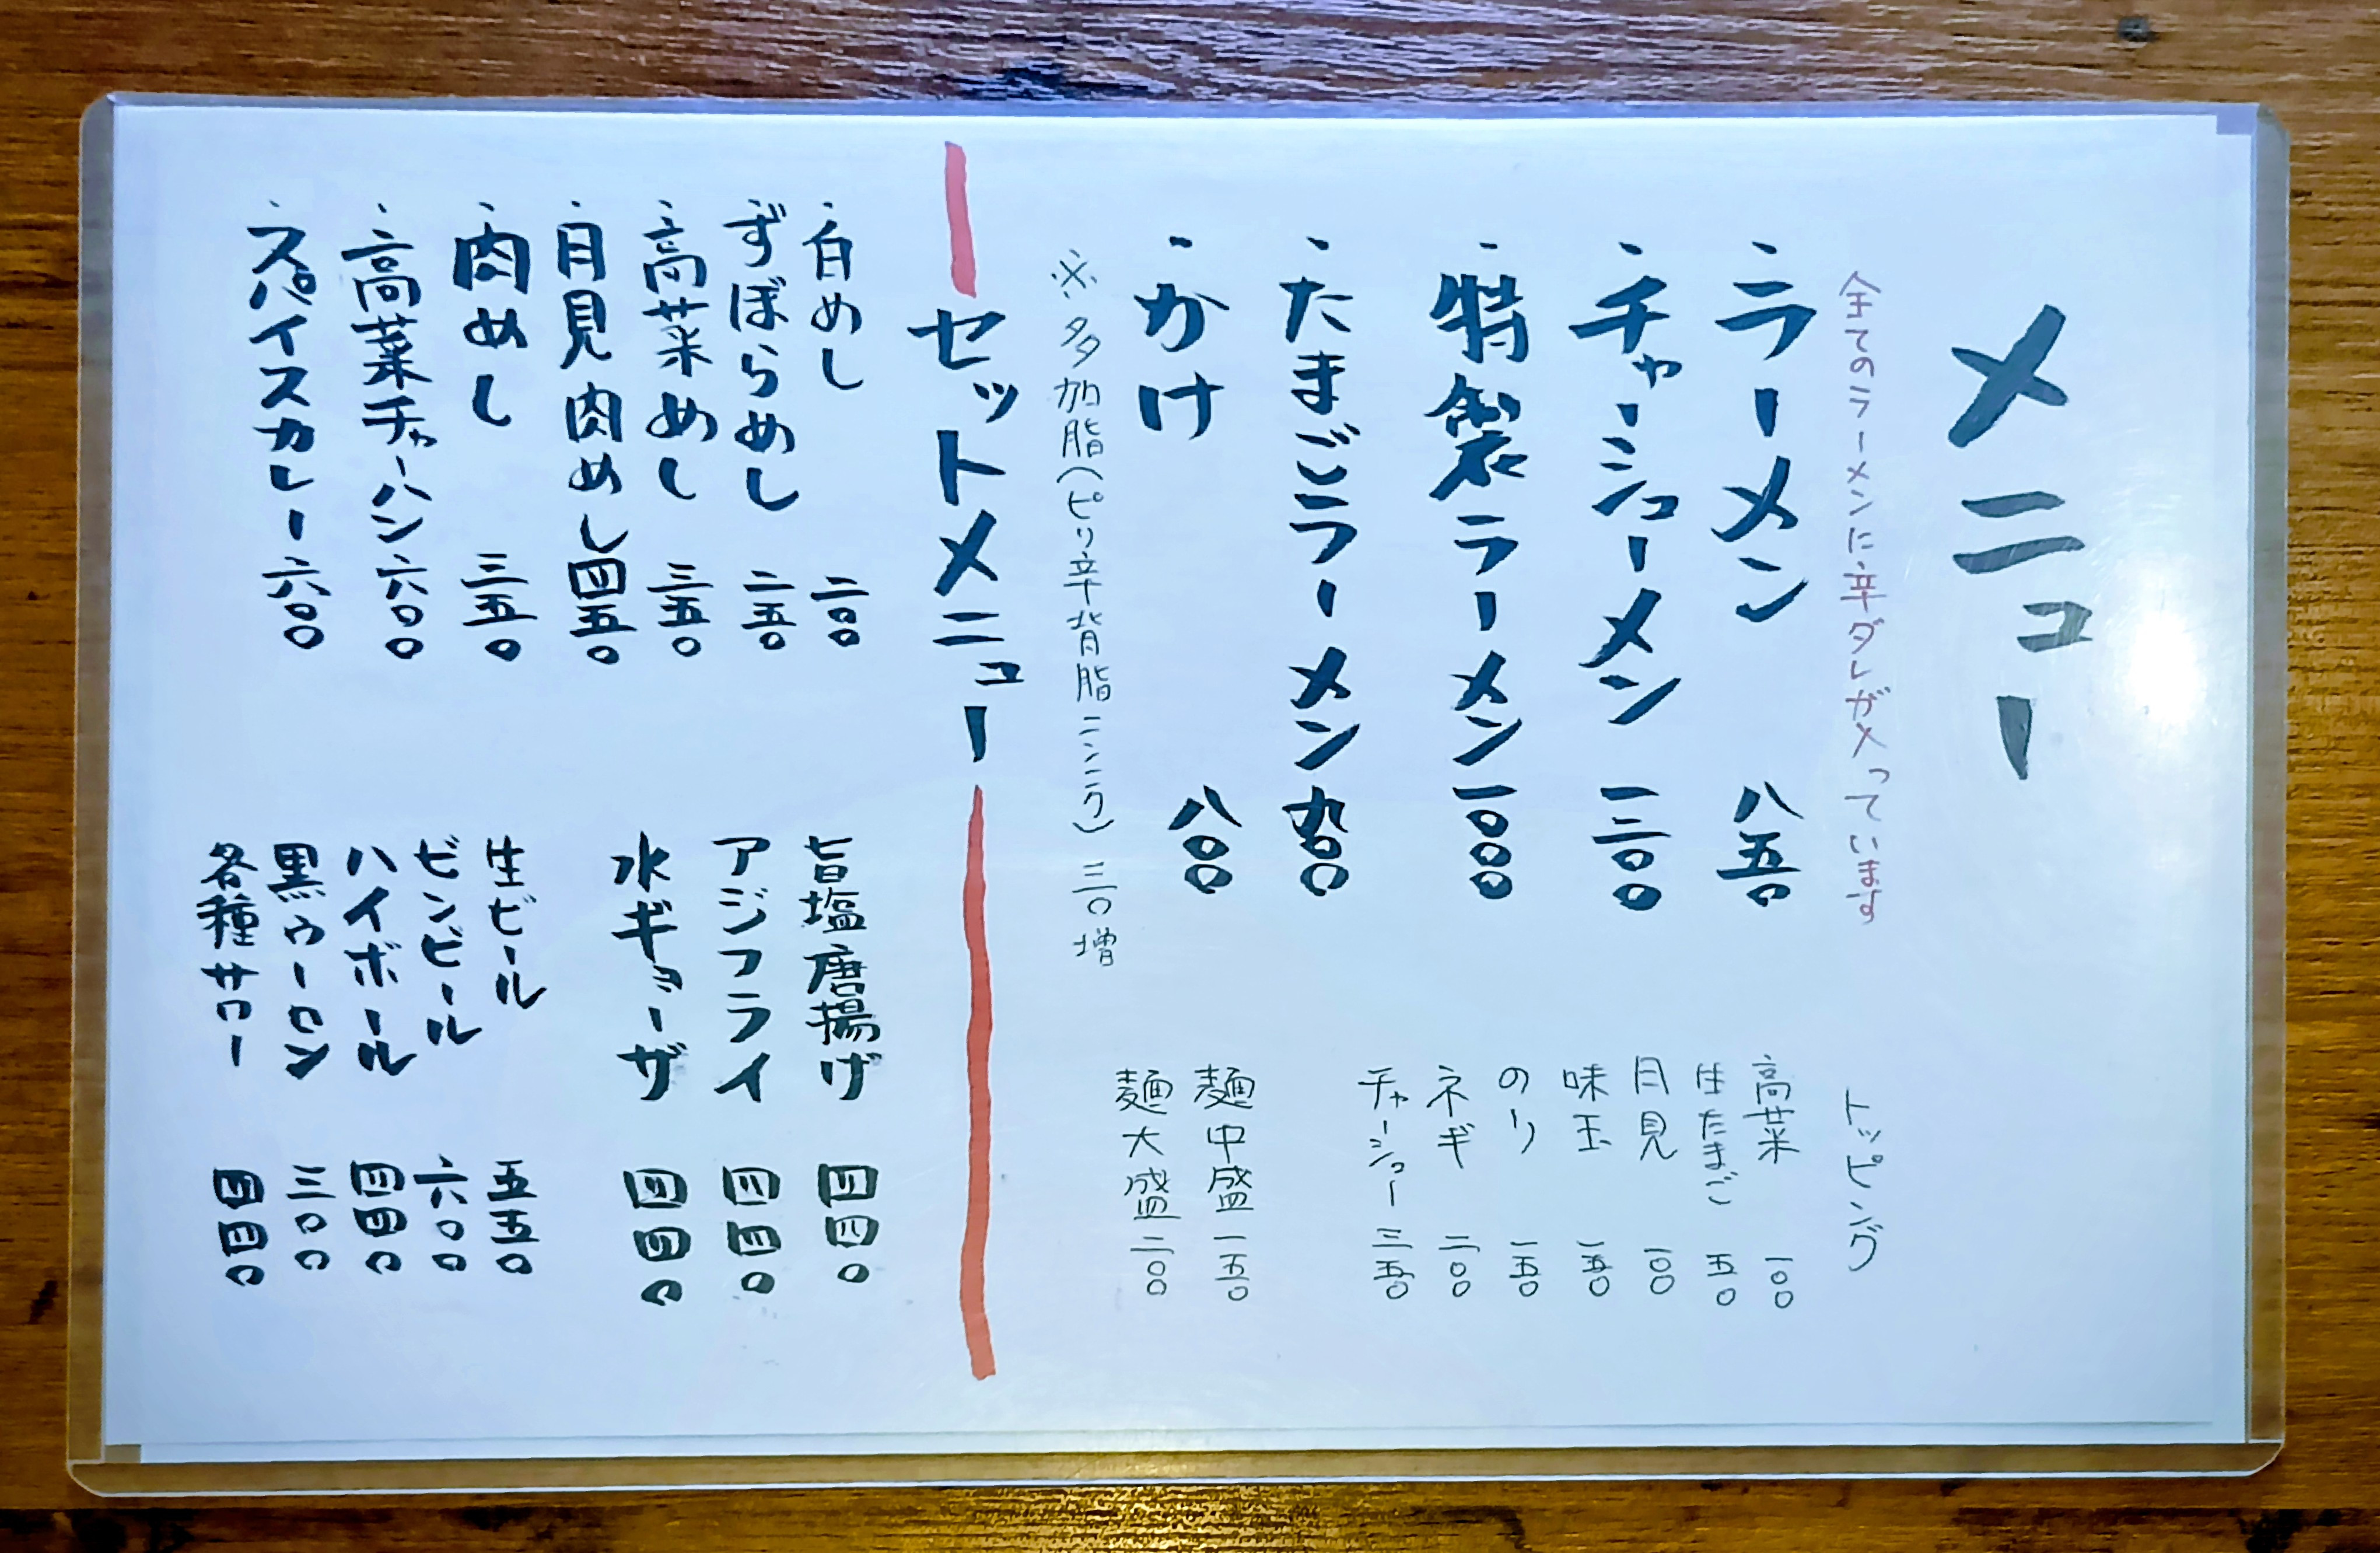 メニュー
全てのラーメンに辛ダレが入っています
・ラーメン 八五〇
・チャーシューメン 一二〇〇
・特製ラーメン 一〇〇〇
・たまごラーメン 九〇〇
・かけ 八〇〇
※多加脂(ピリ辛背脂ニンニク) 三〇増
トッピング
高菜 一〇〇
生たまご 五〇
月見 一〇〇
味玉 一五〇
のり 一五〇
ネギ 二〇〇
チャーシュー 三五〇
麺中盛 一五〇
麺大盛 二〇〇
セットメニュー
・白めし 二〇〇
・ずぼらめし 二五〇
・高菜めし 三五〇
・月見肉めし 四五〇
・肉めし 三五〇
・高菜チャーハン 六〇〇
・スパイスカレー 六〇〇
旨塩唐揚げ 四四〇
アジフライ 四四〇
水ギョーザ 四四〇
生ビール 五五〇
ビンビール 六〇〇
ハイボール 四四〇
黒ウーロン 三〇〇
各種サワー 四四〇